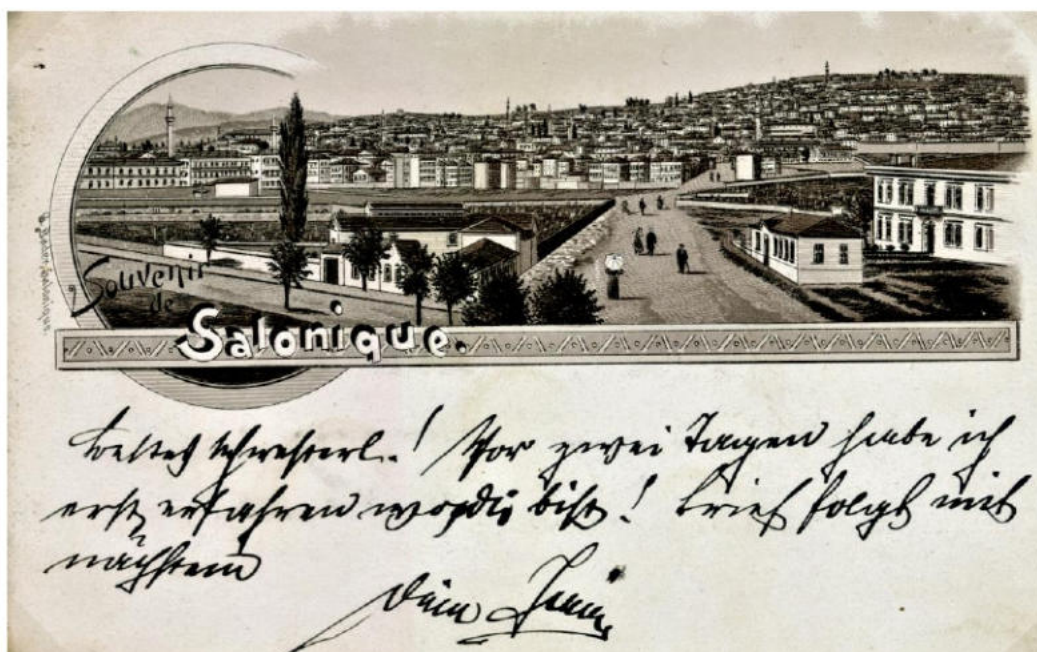 Souvenir
de
Salonique.
bestes Schwesterl! Vor zwei Tagen habe ich
erst erfahren wo du bist! Brief folgt mit
nächstem
Dein